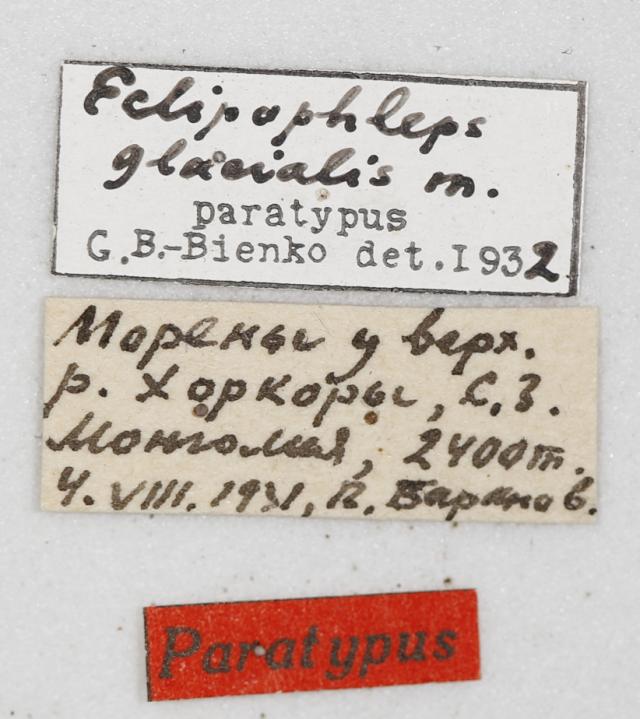 Eclipophleps
glacialis m.
paratypus
G.B.-Bienko det.I932
Морены у верх.
р. Хоркоры, С.З.
Монголия, 2400m.
4.VIII. П. Баранов.
Paratypus